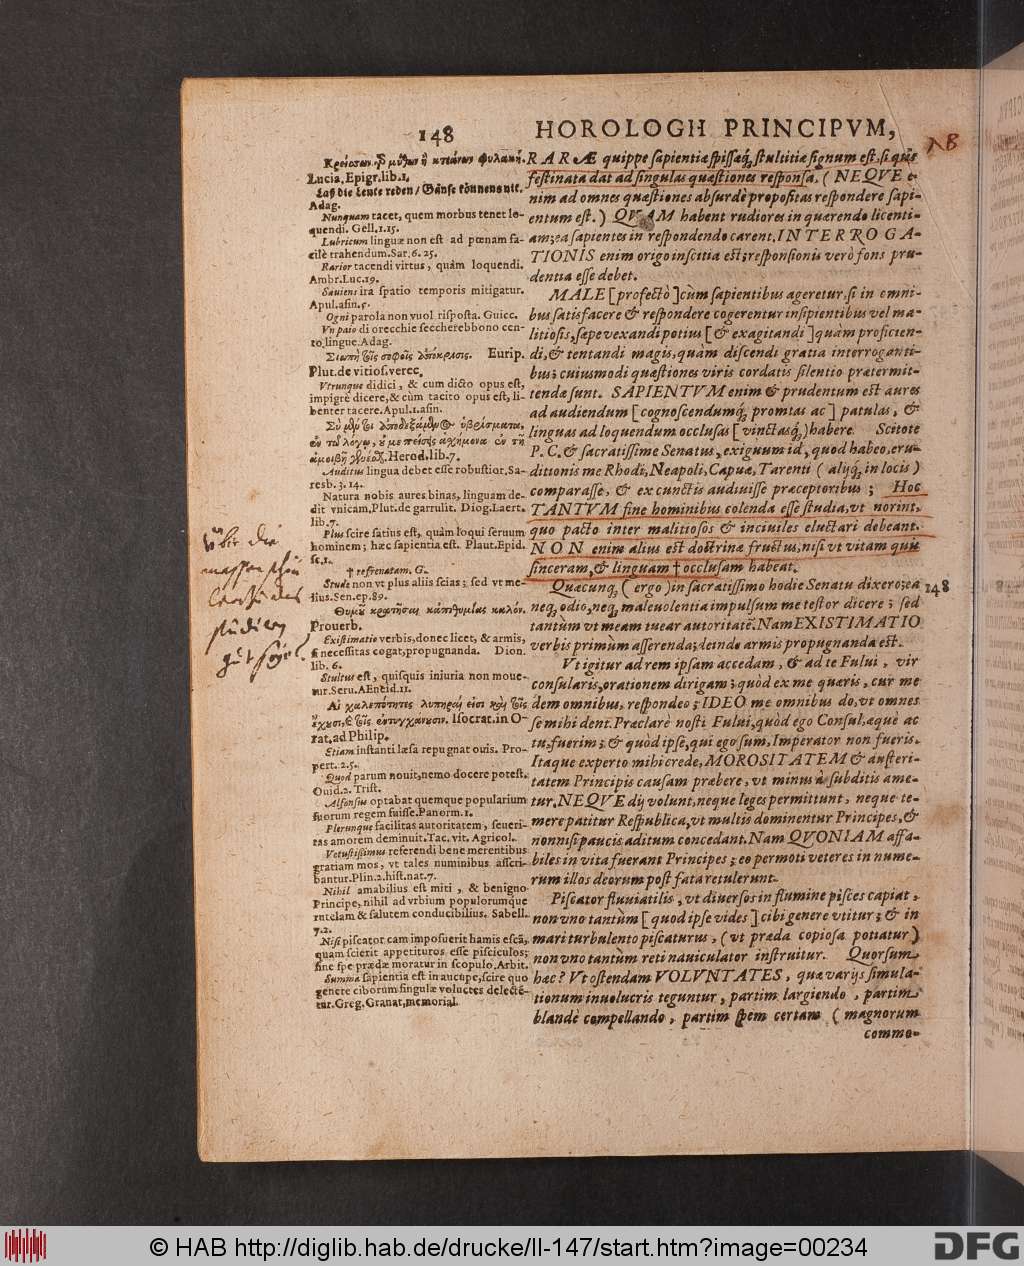 148
HOROLOGII PRINCIPVM,
NB
Lucia. Epigr. lib. 1.
Laß die Leute reden / Gänse können's nit.
Adag.
Nunquam tacet, quem morbus tenet lo-
quendi. Gell. 1. 15.
Lubricum linguæ non est ad pœnam fa-
cilè trahendum. Sar. 6. 25.
Rarior tacendi virtus, quàm loquendi.
Ambr. Luc. 19.
Sæuiens ira spatio temporis mitigatur.
Apul. asin. 5.
Ogni parola non vuol risposta. Guicc.
Vn paio di orecchie seccherebbono cen-
to lingue. Adag.
Σιωπὴ τοῖς σοφοῖς ἀπόκρισις. Eurip.
Plut. de vitios. verec.
Vtrunque didici, & cum dicto opus est,
impigrè dicere, & cùm tacito opus est, li-
benter tacere. Apul. 1. asin.
ἀμοιβῇ Herod. lib. 7.
Auditus lingua debet esse robustior. Sa-
resb. 3. 14.
Natura nobis aures binas, linguam de-
dit vnicam. Plut. de garrulit. Diog. Laert.
lib. 7.
Plus scire satius est, quàm loqui seruum
hominem; hæc sapientia est. Plaut. Epid.
sc. 1.
† refrenatam. G.
Stude non vt plus aliis scias; sed vt me-
lius. Sen. ep. 89.
Θυμοῦ κρατῆσαι κἀπιθυμίας καλόν.
Prouerb.
Existimatio verbis, donec licet, & armis,
si necessitas cogat, propugnanda. Dion.
lib. 6.
Stultus est, quisquis iniuria non moue-
tur. Seru. AEneid. 11.
Αἱ χαλεπότητες λυπηραί εἰσι καὶ τοῖς
ἔχουσι, & τοῖς ἐντυγχάνουσιν. Isocrat. in O-
rat. ad Philip.
Etiam instanti læsa repugnat ouis. Pro-
pert. 2. 5.
Quod parum nouit, nemo docere potest.
Ouid. 2. Trist.
Alfonsus optabat quemque popularium
suorum regem fuisse. Panorm. 1.
Plerunque facilitas autoritatem, seueri-
tas amorem deminuit. Tac. vit. Agricol.
Vetustissimus referendi bene merentibus
gratiam mos, vt tales numinibus asscri-
bantur. Plin. 2. hist. nat. 7.
Nihil amabilius est miti, & benigno
Principe, nihil ad vrbium populorumque
tutelam & salutem conducibilius. Sabell.
7. 2.
Nisi piscator eam imposuerit hamis escã,
quam scierit appetituros esse pisciculos;
sine spe prædæ moratur in scopulo. Arbit.
Summa sapientia est in aucupe, scire quo
genere ciborum singulæ volucres delectē-
tur. Greg. Granat, memorial.
RARÆ quippe sapientiæ spissæq́; stultitiæ signum est, si quis
festinata dat ad singulas quæstiones responsa. (NEQVE e-
nim ad omnes quæstiones absurdè propositas respondere sapi-
entum est.) QVAM habent rudiores in quærendo licenti-
am; ea sapientes in respondendo carent. INTERROGA-
TIONIS enim origo inscitia est; responsionis verò fons pru-
dentia esse debet.
MALE [profectò] cùm sapientibus ageretur, si in omni-
bus satisfacere & respondere cogerentur insipientibus vel ma-
litiosis, sæpe vexandi potius [& exagitandi] quàm proficien-
di, & tentandi magis, quàm discendi gratia interroganti-
bus; cuiusmodi quæstiones viris cordatis silentio prætermit-
tendæ sunt. SAPIENTVM enim & prudentum est aures
ad audiendum [cognoscendumq́; promtas ac] patulas, &
linguas ad loquendum occlusas [vinctasq́;] habere. Scitote
P. C. & sacratissime Senatus, exiguum id, quod habeo, eru-
ditionis me Rhodi, Neapoli, Capuæ, Tarenti (alijq́; in locis)
comparasse, & ex cunctis audiuisse præceptoribus; Hoc
TANTVM fine hominibus colenda esse studia, vt norint,
quo pacto inter malitiosos & inciuiles eluctari debeant.
NON enim alius est doctrinæ fructus, nisi vt vitam quis
sinceram, & linguam † occlusam habeat.
Quæcunq́; (ergo) in sacratissimo hodie Senatu dixero; ea
148
neq; odio, neq; maleuolentia impulsum me testor dicere; sed
tantùm vt meam tuear autoritatē. Nam EXISTIMATIO
verbis primùm asserenda; deinde armis propugnanda est.
Vt igitur ad rem ipsam accedam, & ad te Fului, vir
consularis, orationem dirigam; quòd ex me quæris, cur me
dem omnibus, respondeo; IDEO me omnibus do, vt omnes
se mihi dent. Præclarè nosti Fului, quòd ego Consul, æquè ac
tu, fuerim; & quòd ipse, qui ego sum, Imperator non fueris.
Itaque experto mihi crede, MOROSITATEM & austeri-
tatem Principis causam præbere, vt minus à subditis ame-
tur. NEQVE dij volunt, neque leges permittunt, neque te-
merè patitur Respublica, vt multis dominentur Principes, &
nonnisi paucis aditum concedant. Nam QVONIAM affa-
biles in vita fuerant Principes; eo permoti veteres in nume-
rum illos deorum post fata retulerunt.
Piscator fluuiatilis, vt diuersos in flumine pisces capiat,
non vno tantùm [quod ipse vides] cibi genere vtitur; & in
mari turbulento piscaturus, (vt præda copiosa potiatur)
non vno tantum reti nauiculator instruitur. Quorsum
hæc? Vt ostendam VOLVNTATES, quæ varijs simula-
tionum inuolucris teguntur, partim largiendo, partim
blandè compellando, partim spem certam (magnorum
commo-
über die
studiren
© HAB http://diglib.hab.de/drucke/ll-147/start.htm?image=00234
DFG